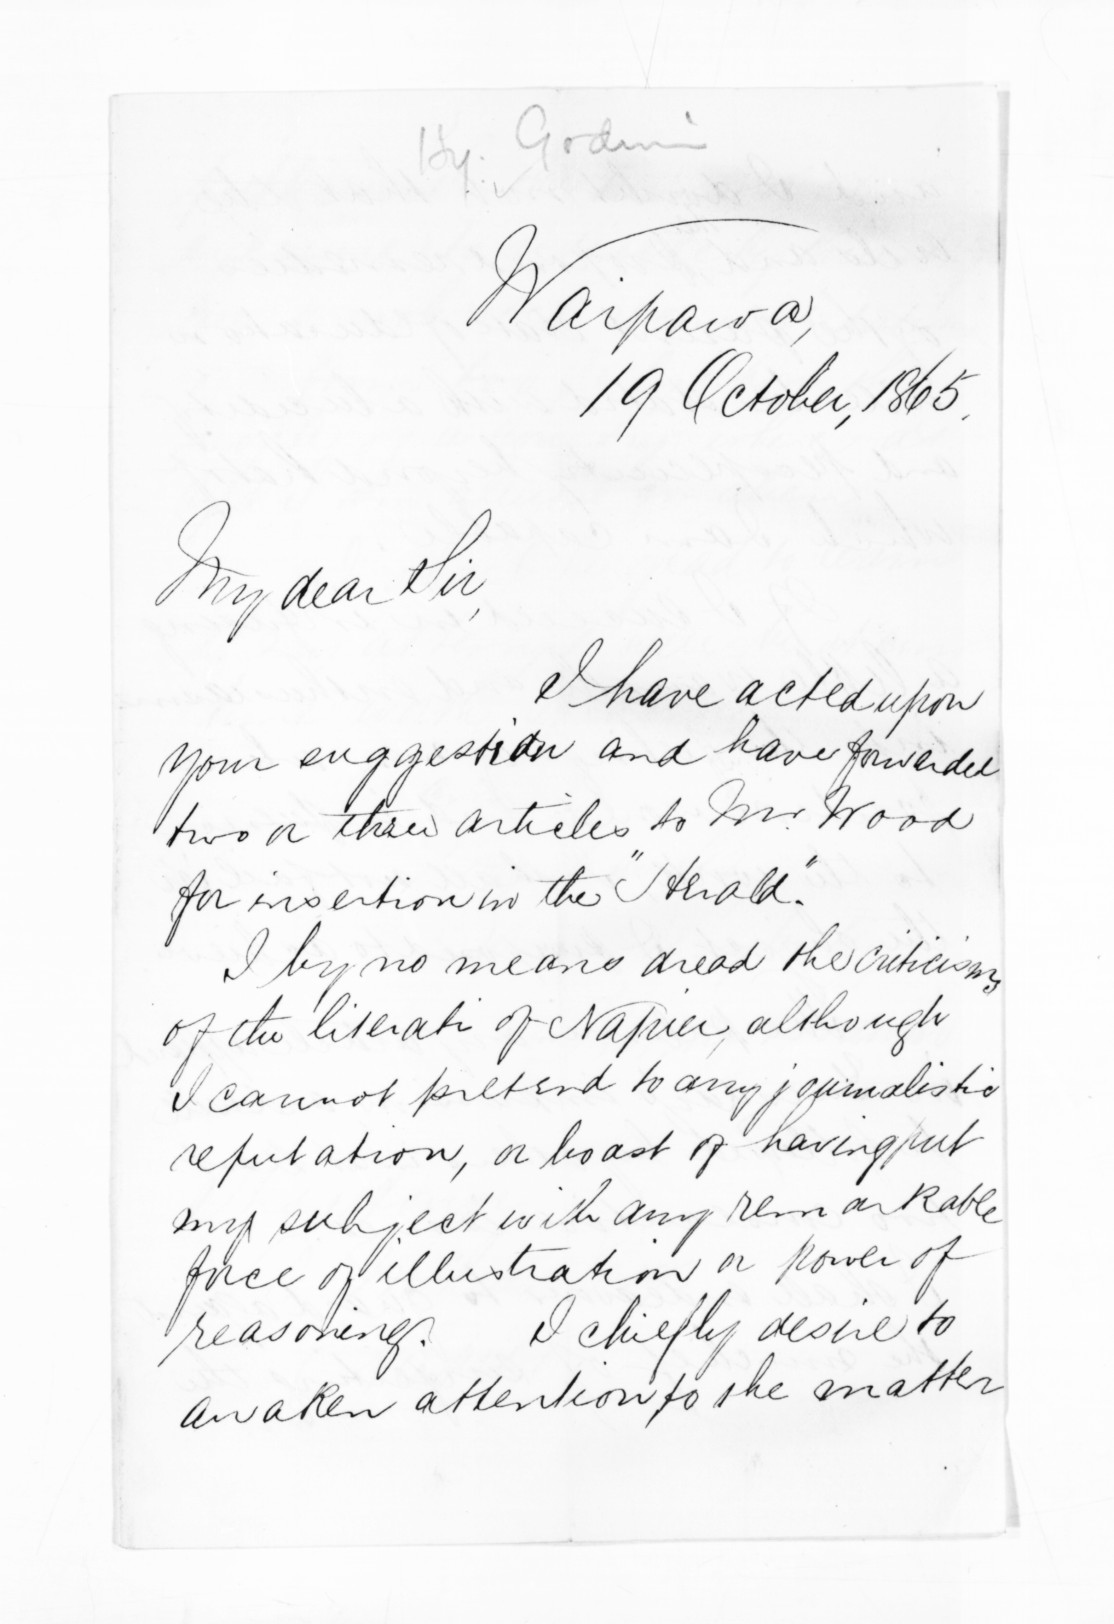 Hy. Godwin
Waipawa,
19 October, 1865.
My dear Sir,
I have acted upon
your suggestion and have forwarded
two or three articles to Mr. Wood
for insertion in the "Herald".
I by no means dread the criticisms
of the literati of Napier, although
I cannot pretend to any journalistic
reputation, or boast of having put
my subject with any remarkable
force of illustration or power of
reasoning. I chiefly desire to
awaken attention to the matter